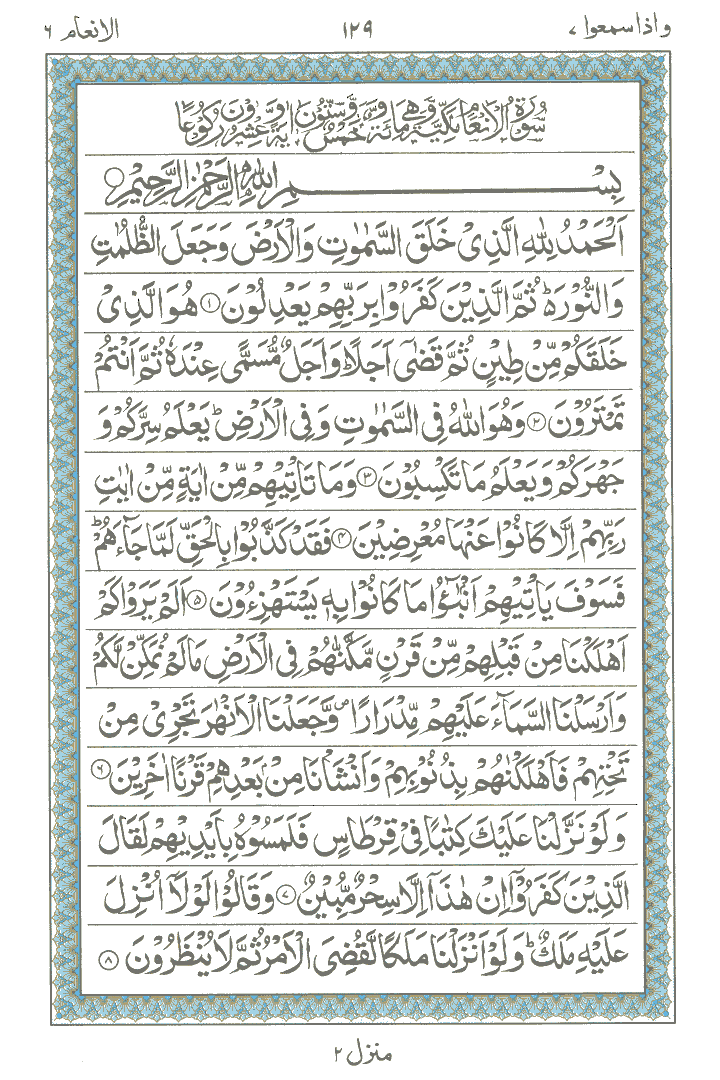 واذا سمعوا ٧ ١٢٩ الانعام ٦
سُوْرَةُ الْاَنْعَامِ مَكِّیَّةٌ وَّهِیَ مِائَةٌ وَّخَمْسٌ وَّسِتُّوْنَ اٰیَةً وَّعِشْرُوْنَ رُكُوْعًا
بِسْمِ اللّٰهِ الرَّحْمٰنِ الرَّحِیْمِ
اَلْحَمْدُ لِلّٰهِ الَّذِیْ خَلَقَ السَّمٰوٰتِ وَالْاَرْضَ وَجَعَلَ الظُّلُمٰتِ
وَالنُّوْرَ ؕ ثُمَّ الَّذِیْنَ كَفَرُوْا بِرَبِّهِمْ یَعْدِلُوْنَ ۝١ هُوَ الَّذِیْ
خَلَقَكُمْ مِّنْ طِیْنٍ ثُمَّ قَضٰۤی اَجَلًا ؕ وَاَجَلٌ مُّسَمًّی عِنْدَهٗ ثُمَّ اَنْتُمْ
تَمْتَرُوْنَ ۝٢ وَهُوَ اللّٰهُ فِی السَّمٰوٰتِ وَفِی الْاَرْضِ ؕ یَعْلَمُ سِرَّكُمْ وَ
جَهْرَكُمْ وَیَعْلَمُ مَا تَكْسِبُوْنَ ۝٣ وَمَا تَاْتِیْهِمْ مِّنْ اٰیَةٍ مِّنْ اٰیٰتِ
رَبِّهِمْ اِلَّا كَانُوْا عَنْهَا مُعْرِضِیْنَ ۝٤ فَقَدْ كَذَّبُوْا بِالْحَقِّ لَمَّا جَآءَهُمْ ؕ
فَسَوْفَ یَاْتِیْهِمْ اَنْۢبٰٓؤُا مَا كَانُوْا بِهٖ یَسْتَهْزِءُوْنَ ۝٥ اَلَمْ یَرَوْا كَمْ
اَهْلَكْنَا مِنْ قَبْلِهِمْ مِّنْ قَرْنٍ مَّكَّنّٰهُمْ فِی الْاَرْضِ مَا لَمْ نُمَكِّنْ لَّكُمْ
وَاَرْسَلْنَا السَّمَآءَ عَلَیْهِمْ مِّدْرَارًا ۪ وَّجَعَلْنَا الْاَنْهٰرَ تَجْرِیْ مِنْ
تَحْتِهِمْ فَاَهْلَكْنٰهُمْ بِذُنُوْبِهِمْ وَاَنْشَاْنَا مِنْۢ بَعْدِهِمْ قَرْنًا اٰخَرِیْنَ ۝٦
وَلَوْ نَزَّلْنَا عَلَیْكَ كِتٰبًا فِیْ قِرْطَاسٍ فَلَمَسُوْهُ بِاَیْدِیْهِمْ لَقَالَ
الَّذِیْنَ كَفَرُوْۤا اِنْ هٰذَاۤ اِلَّا سِحْرٌ مُّبِیْنٌ ۝٧ وَقَالُوْا لَوْلَاۤ اُنْزِلَ
عَلَیْهِ مَلَكٌ ؕ وَلَوْ اَنْزَلْنَا مَلَكًا لَّقُضِیَ الْاَمْرُ ثُمَّ لَا یُنْظَرُوْنَ ۝٨
منزل ٢